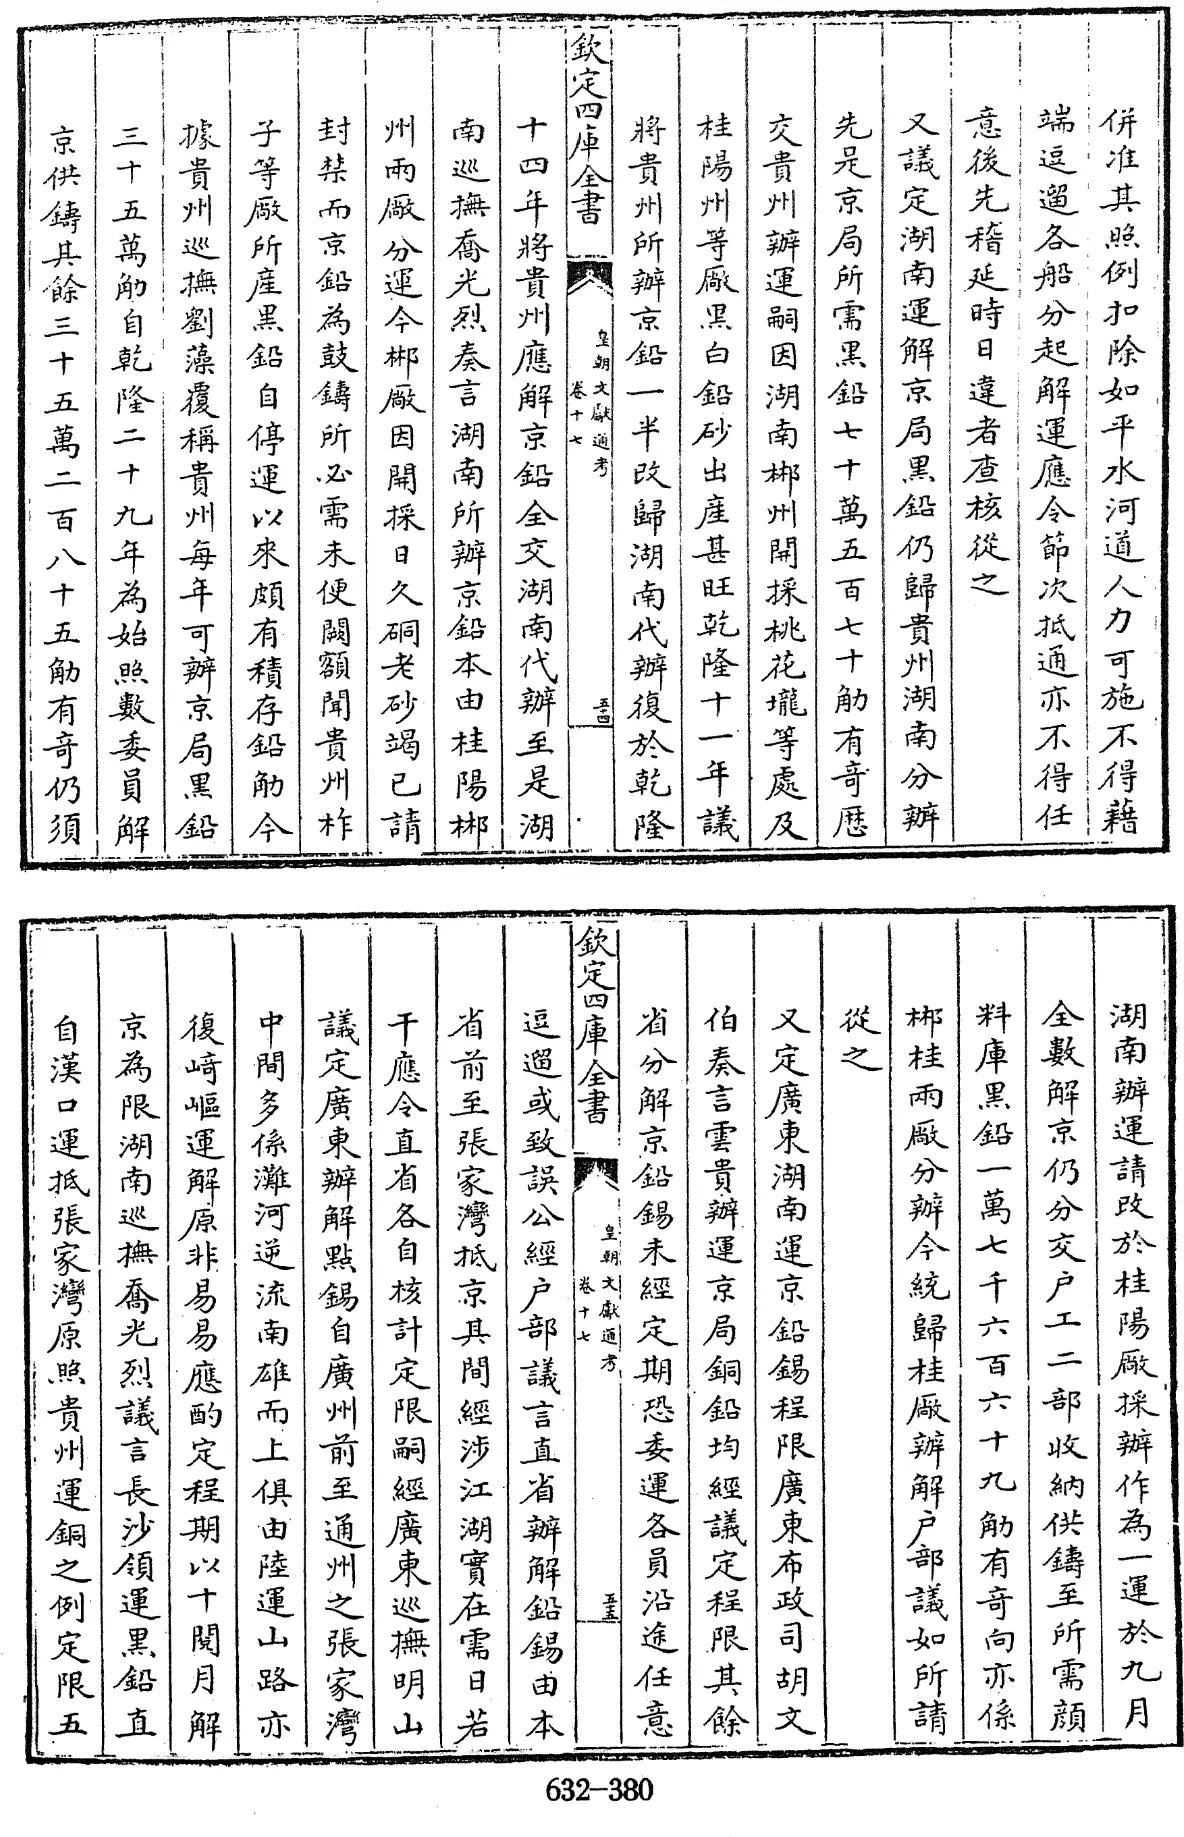 併准其照例扣除如平水河道人力可施不得藉
端逗遛各船分起解運應令節次抵通亦不得任
意後先稽延時日違者查核從之
又議定湖南運解京局黑鉛仍歸貴州湖南分辦
先是京局所需黑鉛七十萬五百七十觔有奇歴
交貴州辦運嗣因湖南郴州開採桃花壠等處及
桂陽州等廠黑白鉛砂出産甚旺乾隆十一年議
將貴州所辦京鉛一半改歸湖南代辦復於乾隆
欽定四庫全書
皇朝文獻通考
卷十七
五十四
十四年將貴州應解京鉛全交湖南代辦至是湖
南巡撫喬光烈奏言湖南所辦京鉛本由桂陽郴
州兩廠分運今郴廠因開採日久硐老砂竭已請
封禁而京鉛為鼓鑄所必需未便闕額聞貴州柞
子等廠所産黒鉛自停運以來頗有積存鉛觔今
據貴州巡撫劉藻覆稱貴州每年可辦京局黑鉛
三十五萬觔自乾隆二十九年為始照數委員解
京供鑄其餘三十五萬二百八十五觔有奇仍須
湖南辦運請改於桂陽廠採辦作為一運於九月
全數解京仍分交户工二部收納供鑄至所需顔
料庫黑鉛一萬七千六百六十九觔有奇向亦係
郴桂兩廠分辦今統歸桂廠辦解户部議如所請
從之
又定廣東湖南運京鉛錫程限廣東布政司胡文
伯奏言雲貴辦運京局銅鉛均經議定程限其餘
省分解京鉛錫未經定期恐委運各員沿途任意
欽定四庫全書
皇朝文獻通考
卷十七
五十五
逗遛或致誤公經户部議言直省辦解鉛錫由本
省前至張家灣抵京其間經涉江湖實在需日若
干應令直省各自核計定限嗣經廣東巡撫明山
議定廣東辦解點錫自廣州前至通州之張家灣
中間多係灘河逆流南雄而上俱由陸運山路亦
復﨑嶇運解原非易易應酌定程期以十閱月解
京為限湖南巡撫喬光烈議言長沙領運黑鉛直
自漢口運抵張家灣原照貴州運銅之例定限五
632-380